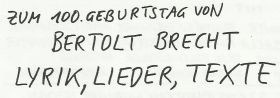 ZUM 100. GEBURTSTAG VON
BERTOLT BRECHT
LYRIK, LIEDER, TEXTE